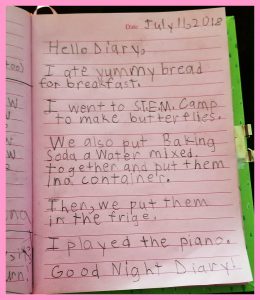 Date July 11, 2018
Hello Diary,
I ate yummy bread
for breakfast.
I went to S.T.E.M. Camp
to make butterflies.
We also put Baking
Soda a Water mixed
together and put them
in a container.
Then, we put them
in the frige.
I played the piano.
Good Night Diary!